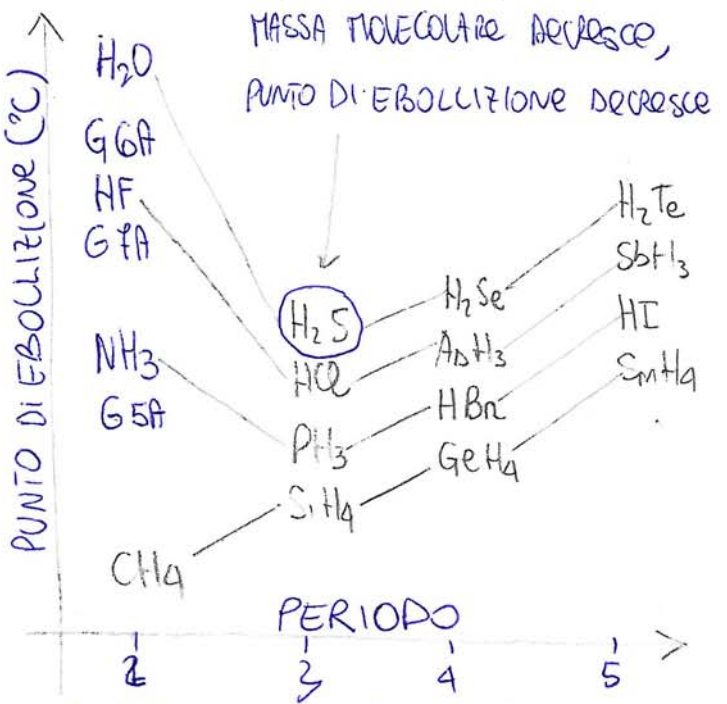 MASSA MOLECOLARE DECRESCE,
PUNTO DI EBOLLIZIONE DECRESCE
PUNTO DI EBOLLIZIONE (°C)
H₂O
G6A
HF
G7A
NH₃
G5A
CH₄
H₂S
HCl
PH₃
SiH₄
H₂Se
AsH₃
HBr
GeH₄
H₂Te
SbH₃
HI
SnH₄
PERIODO
2
3
4
5